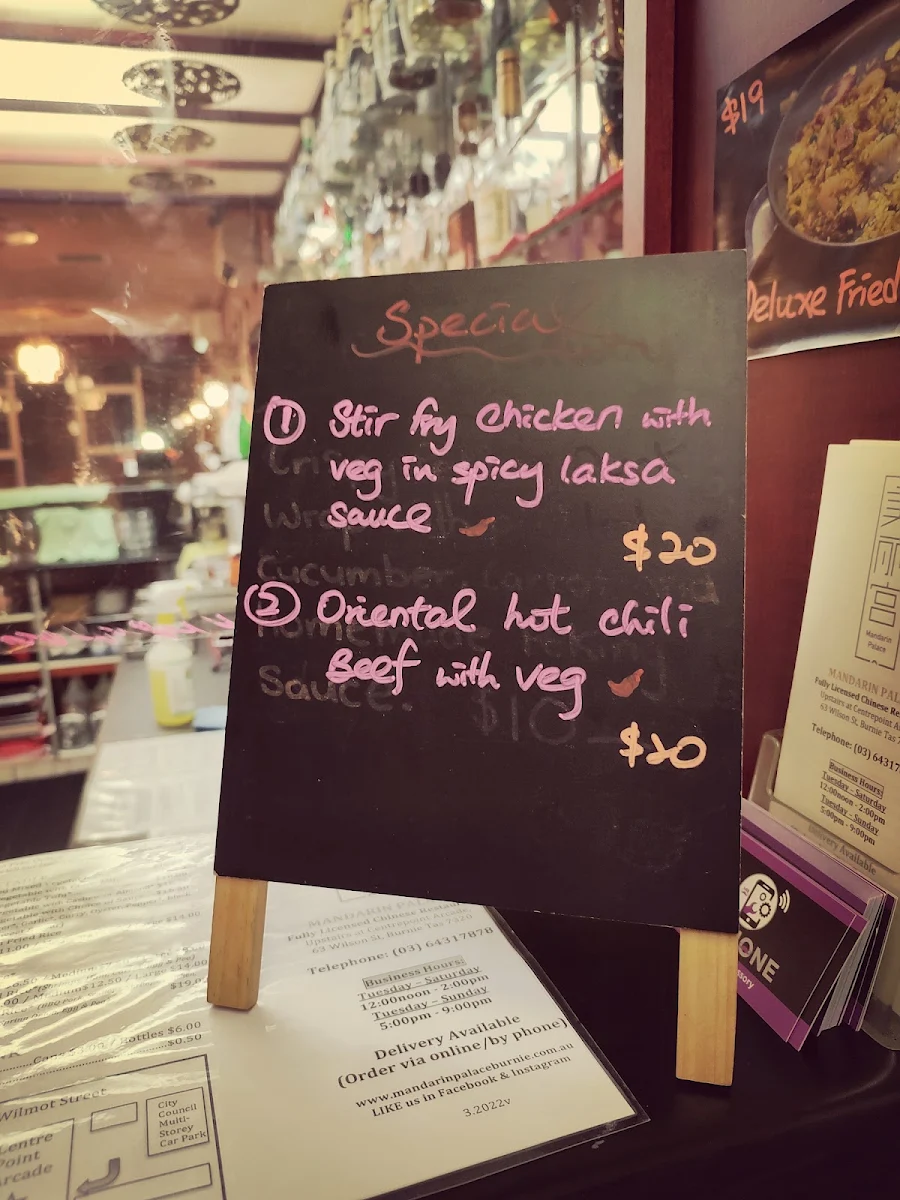 Specials
① Stir fry chicken with
veg in spicy laksa
sauce
$20
② Oriental hot chili
Beef with veg
$20
Cucumber,
Sauce.
$10
$19
Deluxe Fried
Mandarin
Palace
MANDARIN PAL
Fully Licensed Chinese Res
Upstairs at Centrepoint A
63 Wilson St, Burnie Tas 7
Telephone: (03) 64317
Business Hours:
Tuesday - Saturday
12:00noon - 2:00pm
Tuesday - Sunday
5:00pm - 9:00pm
Delivery Available
ONE
ssory
MANDARIN PAL
Fully Licensed Chinese Restaura
Upstairs at Centrepoint Arcade
63 Wilson St, Burnie Tas 7320
Telephone: (03) 64317878
Business Hours:
Tuesday - Saturday
12:00noon - 2:00pm
Tuesday - Sunday
5:00pm - 9:00pm
Delivery Available
(Order via online/by phone)
www.mandarinpalaceburnie.com.au
LIKE us in Facebook & Instagram
3.2022v
$14.00
Fried Rice
/ Medium $12.50 / Large $14.00
/ Bottles $6.00
$0.50
Wilmot Street
City
Council
Multi-
Storey
Car Park
Centre
Point
Arcade